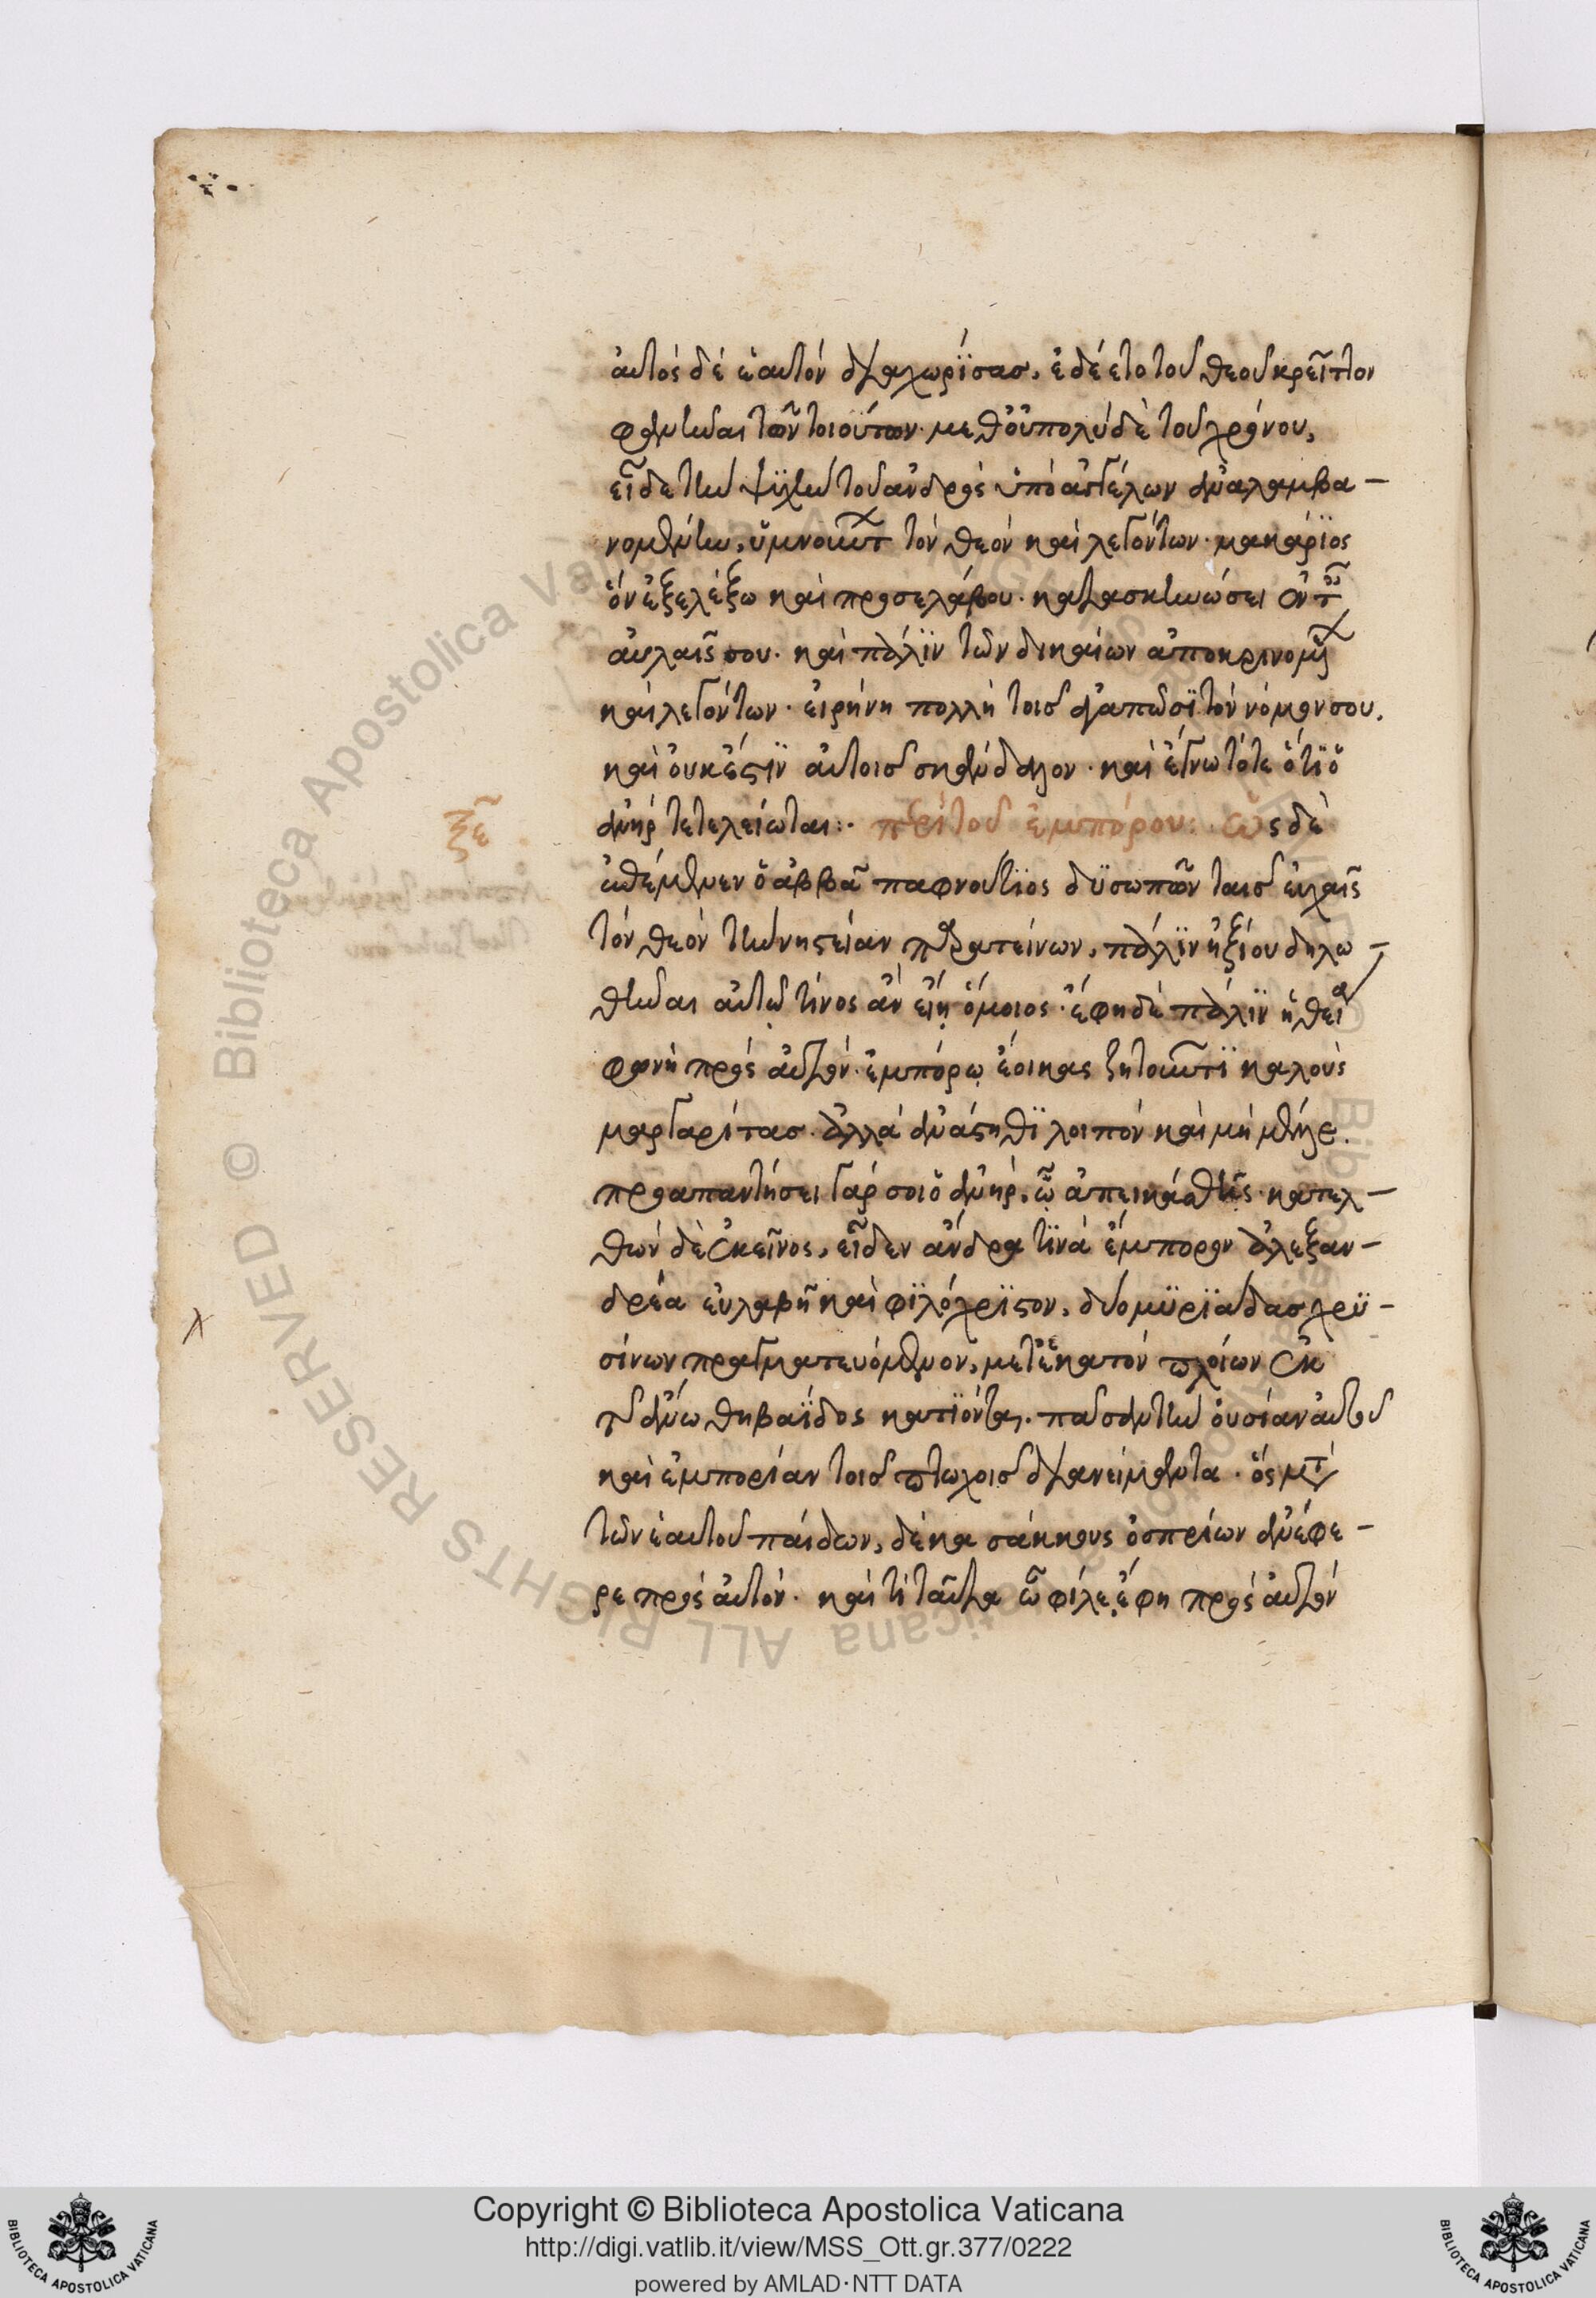 αὐτὸς δὲ ἑαυτὸν ἀναχωρήσας, ἐδέετο τοῦ θεοῦ κρεῖττον
φανῆναι τῶν τοιούτων· μεθ' οὐ πολὺ δὲ τοῦ χρόνου,
εἶδε τὴν ψυχὴν τοῦ ἀνδρὸς ὑπὸ ἀγγέλων ἀναλαμβα-
νομένην, ὑμνούντ τὸν θεὸν καὶ λεγόντων· μακάριος
ὃν ἐξελέξω καὶ προσελάβου· κατασκηνώσει ἐν τ
αὐλαῖς σου· καὶ πάλϊν τῶν δικαίων ἀποκρινομ
καὶ λεγόντων· εἰρήνη πολλὴ τοῖς ἀγαπῶσϊ τὸν νόμον σου,
καὶ οὐκ ἔστϊν αὐτοῖς σκάνδαλον· καὶ ἔγνω τότε ὅτϊ ὁ
ἀνὴρ τετελείωται:· περὶ τοῦ ἐμπόρου: ὡς δὲ
ξε
ἐπέμενεν ὁ ἀββᾶ παφνούτϊος δϋσωπῶν ταῖς εὐχαῖς
τὸν θεὸν τὴν νηστείαν παρατείνων, πάλϊν ἠξίου δηλω-
θῆναι αὐτῷ τίνος ἂν εἴη ὅμοιος· ἔφη δὲ πάλϊν ἡ θεία
φωνὴ πρὸς αὐτόν· ἐμπόρῳ ἔοικας ζητοῦντϊ καλοὺς
μαργαρίτας· ἀλλὰ ἀνάστηθϊ λοιπὸν καὶ μὴ μέλλε.
προαπαντήσει γάρ σοι ὁ ἀνὴρ, ᾧ ἀπεικάσθης· κατελ-
θὼν δὲ ἐκεῖνος, εἶδεν ἄνδρα τϊνὰ ἔμπορον ἀλεξαν-
δρέα εὐλαβῆ καὶ φϊλόχρϊστον, δύο μϋρϊάδας χρϋ-
σίνων πραγματευόμενον, μετ' ἑκατὸν πλοίων ἐκ
τῆς ἄνω θηβαΐδος κατϊόντα, πᾶσαν τὴν οὐσίαν αὐτοῦ
καὶ ἐμπορίαν τοῖς πτωχοῖς διανείμαντα· ὃς μετὰ
τῶν ἑαυτοῦ παίδων, δέκα σάκκους ὀσπρίων ἀνέφε-
ρε πρὸς αὐτόν· καὶ τί ταῦτα ὦ φίλε, ἔφη πρὸς αὐτὸν
Copyright © Biblioteca Apostolica Vaticana
http://digi.vatlib.it/view/MSS_Ott.gr.377/0222
powered by AMLAD·NTT DATA
BIBLIOTECA APOSTOLICA VATICANA
BIBLIOTECA APOSTOLICA VATICANA